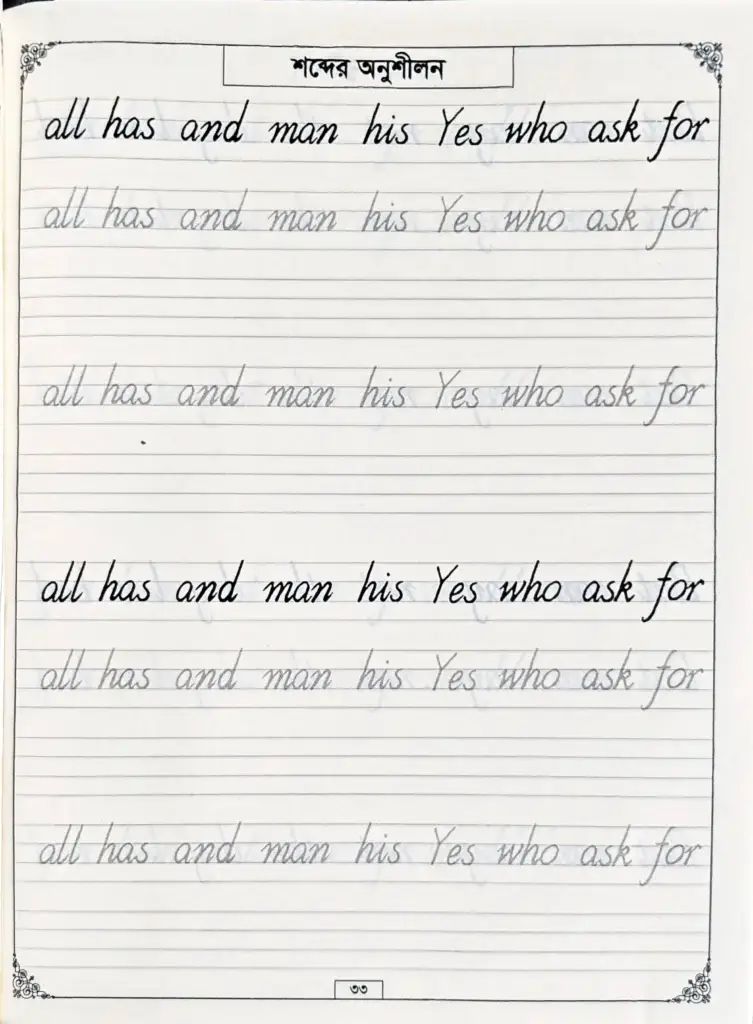 শব্দের অনুশীলন
all has and man his Yes who ask for
all has and man his Yes who ask for
all has and man his Yes who ask for
all has and man his Yes who ask for
all has and man his Yes who ask for
all has and man his Yes who ask for
৩৩